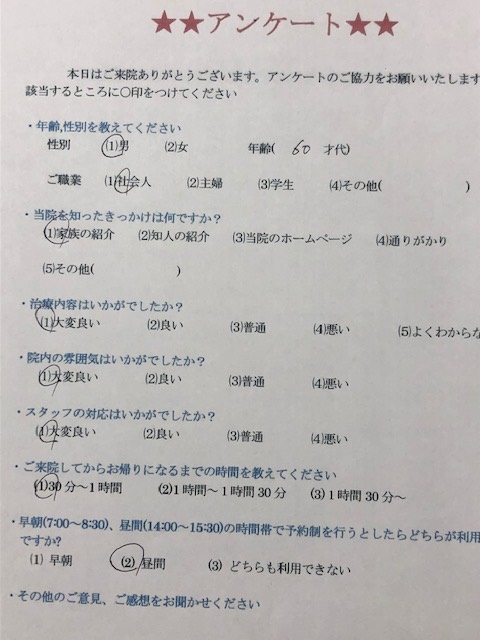 ★★アンケート★★
本日はご来院ありがとうございます。アンケートのご協力をお願いいたします
該当するところに○印をつけてください
・年齢,性別を教えてください
性別 (1)男 (2)女 年齢( 60 才代)
ご職業 (1)社会人 (2)主婦 (3)学生 (4)その他( )
・当院を知ったきっかけは何ですか?
(1)家族の紹介 (2)知人の紹介 (3)当院のホームページ (4)通りがかり
(5)その他( )
・治療内容はいかがでしたか?
(1)大変良い (2)良い (3)普通 (4)悪い (5)よくわからな
・院内の雰囲気はいかがでしたか?
(1)大変良い (2)良い (3)普通 (4)悪い
・スタッフの対応はいかがでしたか?
(1)大変良い (2)良い (3)普通 (4)悪い
・ご来院してからお帰りになるまでの時間を教えてください
(1)30分～1時間 (2)1時間～1時間30分 (3)1時間30分～
・早朝(7:00～8:30)、昼間(14:00～15:30)の時間帯で予約制を行うとしたらどちらが利用
ですか?
(1) 早朝 (2) 昼間 (3) どちらも利用できない
・その他のご意見、ご感想をお聞かせください